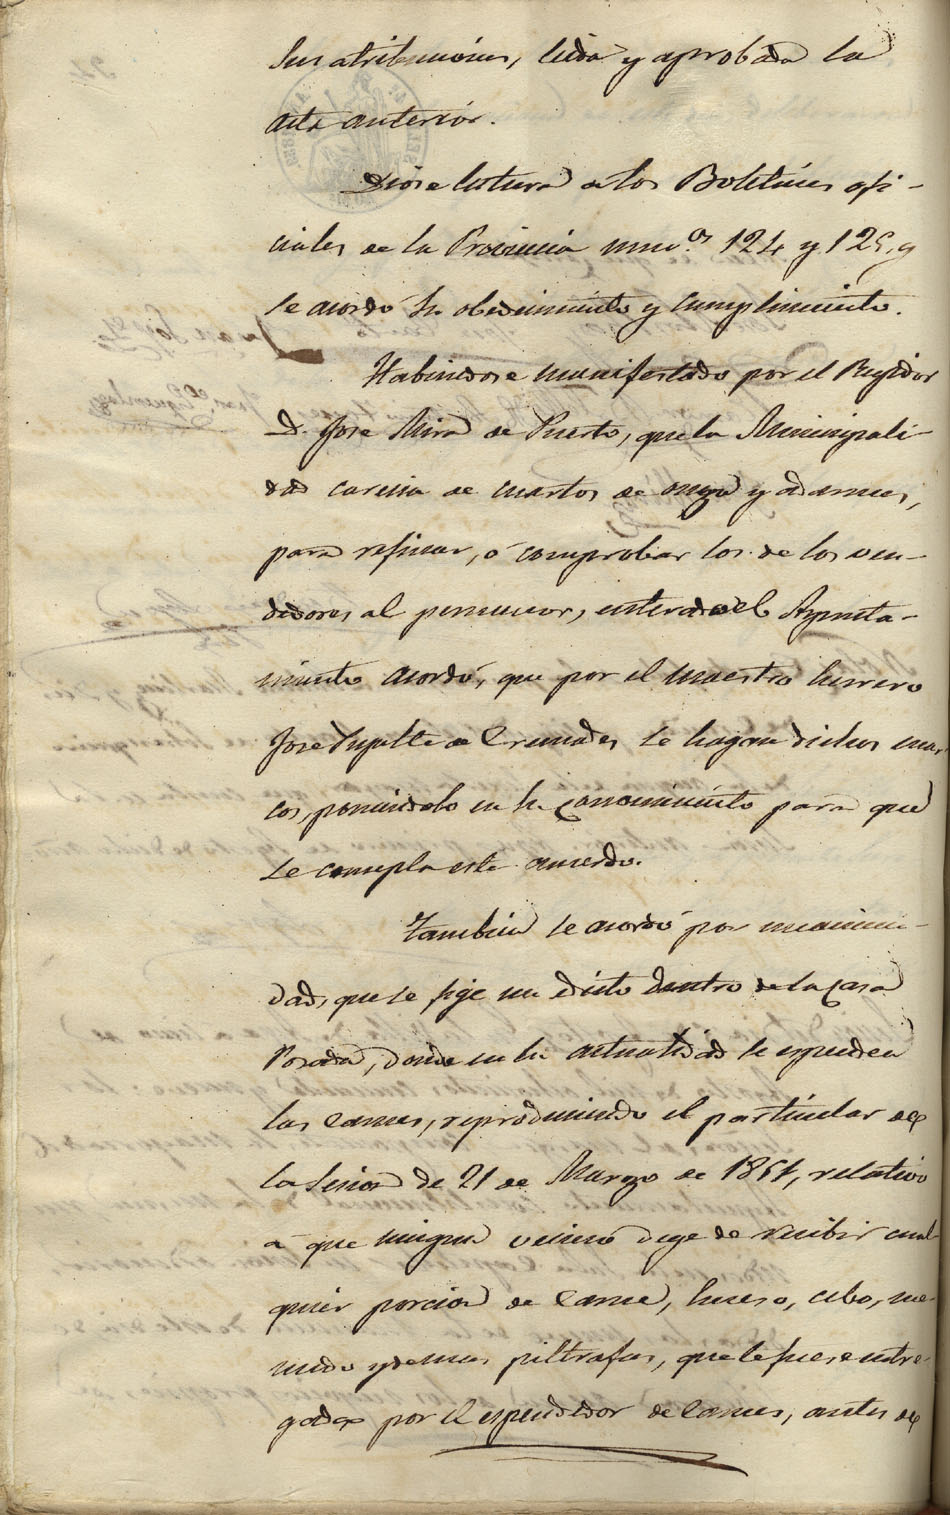 sus atribuciones, leida y aprobada la
acta anterior.
Diose lectura a los Boletines ofi-
ciales de la Provincia num.os 124 y 125, y
se acordó su obedecimiento y cumplimiento.
Habiendose manifestado por el Regidor
D. Jose Mira de Puerto, que la Municipali-
dad carecia de cuartos de onza y adarmes,
para refinar, ó comprobar los de los ven-
dedores al pormenor, enterado el Ayunta-
miento acordó, que por el maestro herrero
Jose de Cremades se hagan dichos mar-
cos, poniendolo en su conocimiento para que
se cumpla este acuerdo.
Tambien se acordó por unanimi-
dad, que se fije un edicto dentro de la Casa
Posada, donde en la actualidad se espenden
las Carnes, reproduciendo el particular de
la Sesion de 21 de Marzo de 1861, relativo
á que ningun vecino deje de recibir cual-
quier porcion de Carne, hueso, cebo, me-
nudo y demas piltrafas, que le fuese entre-
gada por el espendedor de Carnes, antes de